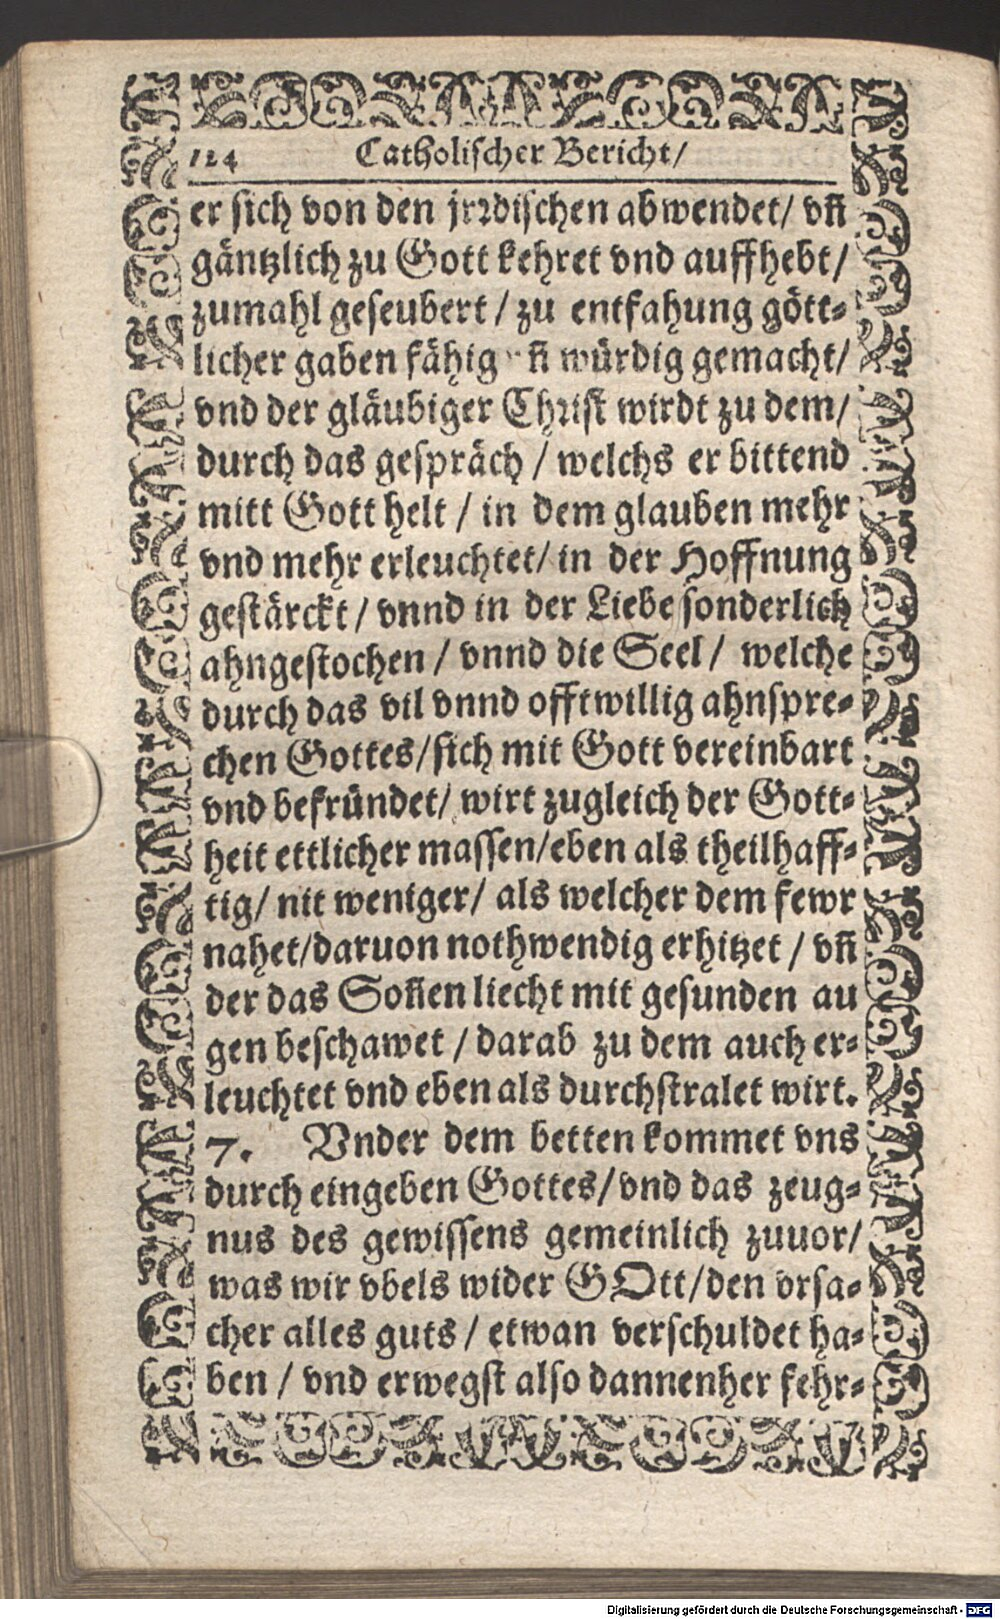 124 Catholischer Bericht/
er sich von den jrꝛdischen abwendet/ vn̄
gäntzlich zu Gott kehret vnd auffhebt/
zumahl geseubert / zu entfahung gött-
licher gaben fähig vn̄ würdig gemacht/
vnd der gläubiger Chꝛist wirdt zu dem/
durch das gespräch / welchs er bittend
mitt Gott helt / in dem glauben mehr
vnd mehr erleuchtet/ in der Hoffnung
gestärckt / vnnd in der Liebe sonderlich
ahngestochen / vnnd die Seel / welche
durch das vil vnnd offtwillig ahnspre-
chen Gottes/sich mit Gott vereinbart
vnd befründet/ wirt zugleich der Gott-
heit ettlicher massen/eben als theilhaff-
tig/ nit weniger/ als welcher dem fewr
nahet/daruon nothwendig erhitzet / vn̄
der das Son̄en liecht mit gesunden au
gen beschawet / darab zu dem auch er-
leuchtet vnd eben als durchstralet wirt.
7. Vnder dem betten kommet vns
durch eingeben Gottes/vnd das zeug-
nus des gewissens gemeinlich zuuor/
was wir vbels wider GOtt/den vrsa-
cher alles guts / etwan verschuldet ha-
ben / vnd erwegst also dannenher fehr-
Digitalisierung gefördert durch die Deutsche Forschungsgemeinschaft - DFG